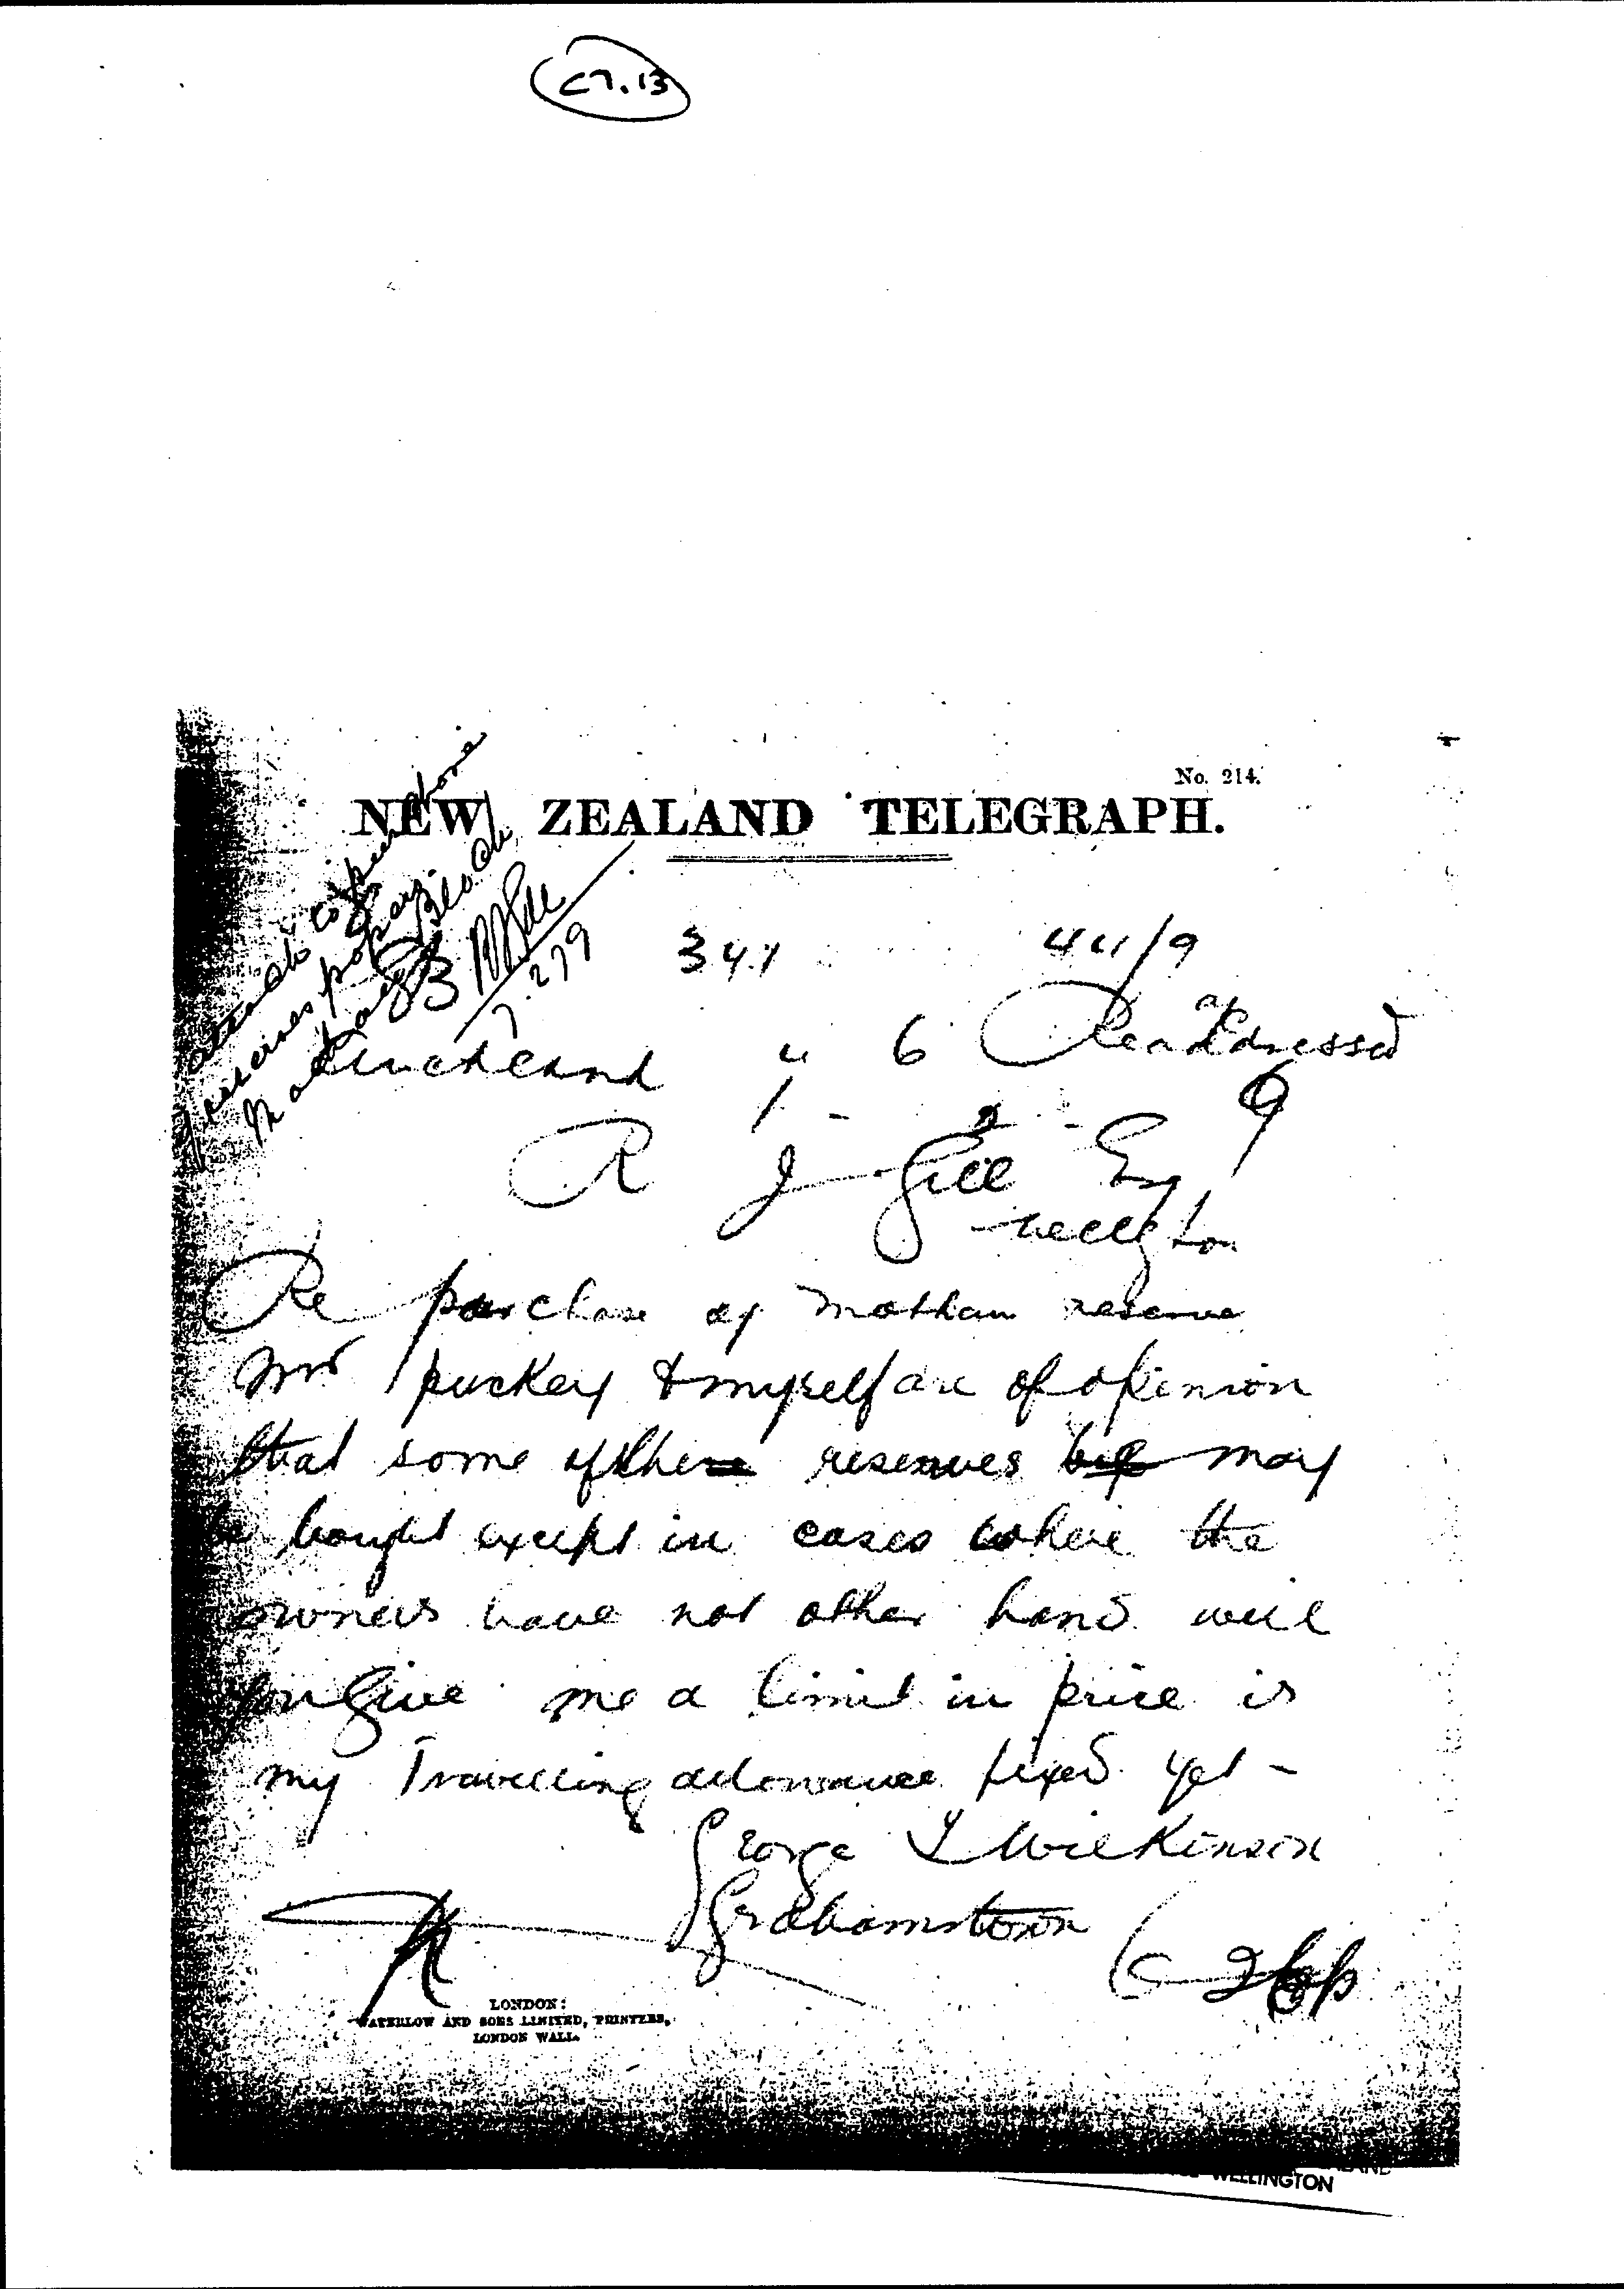 C7.13
No. 214.
NEW ZEALAND TELEGRAPH.
347 44/9
Auckland 6 Readdressed
R J Gill Esq
Wellgton
Re purchase of Mothau reserve
Mr puckey & myself are of opinion
that some of the reserves may
be bought except in cases where the
owners have not other land will
you give me a limit in price is
my Travelling allowance fixed yet -
George T Wilkinson
Grahamstown
LONDON:
WATERLOW AND SONS LIMITED, PRINTERS,
LONDON WALL.
WELLINGTON